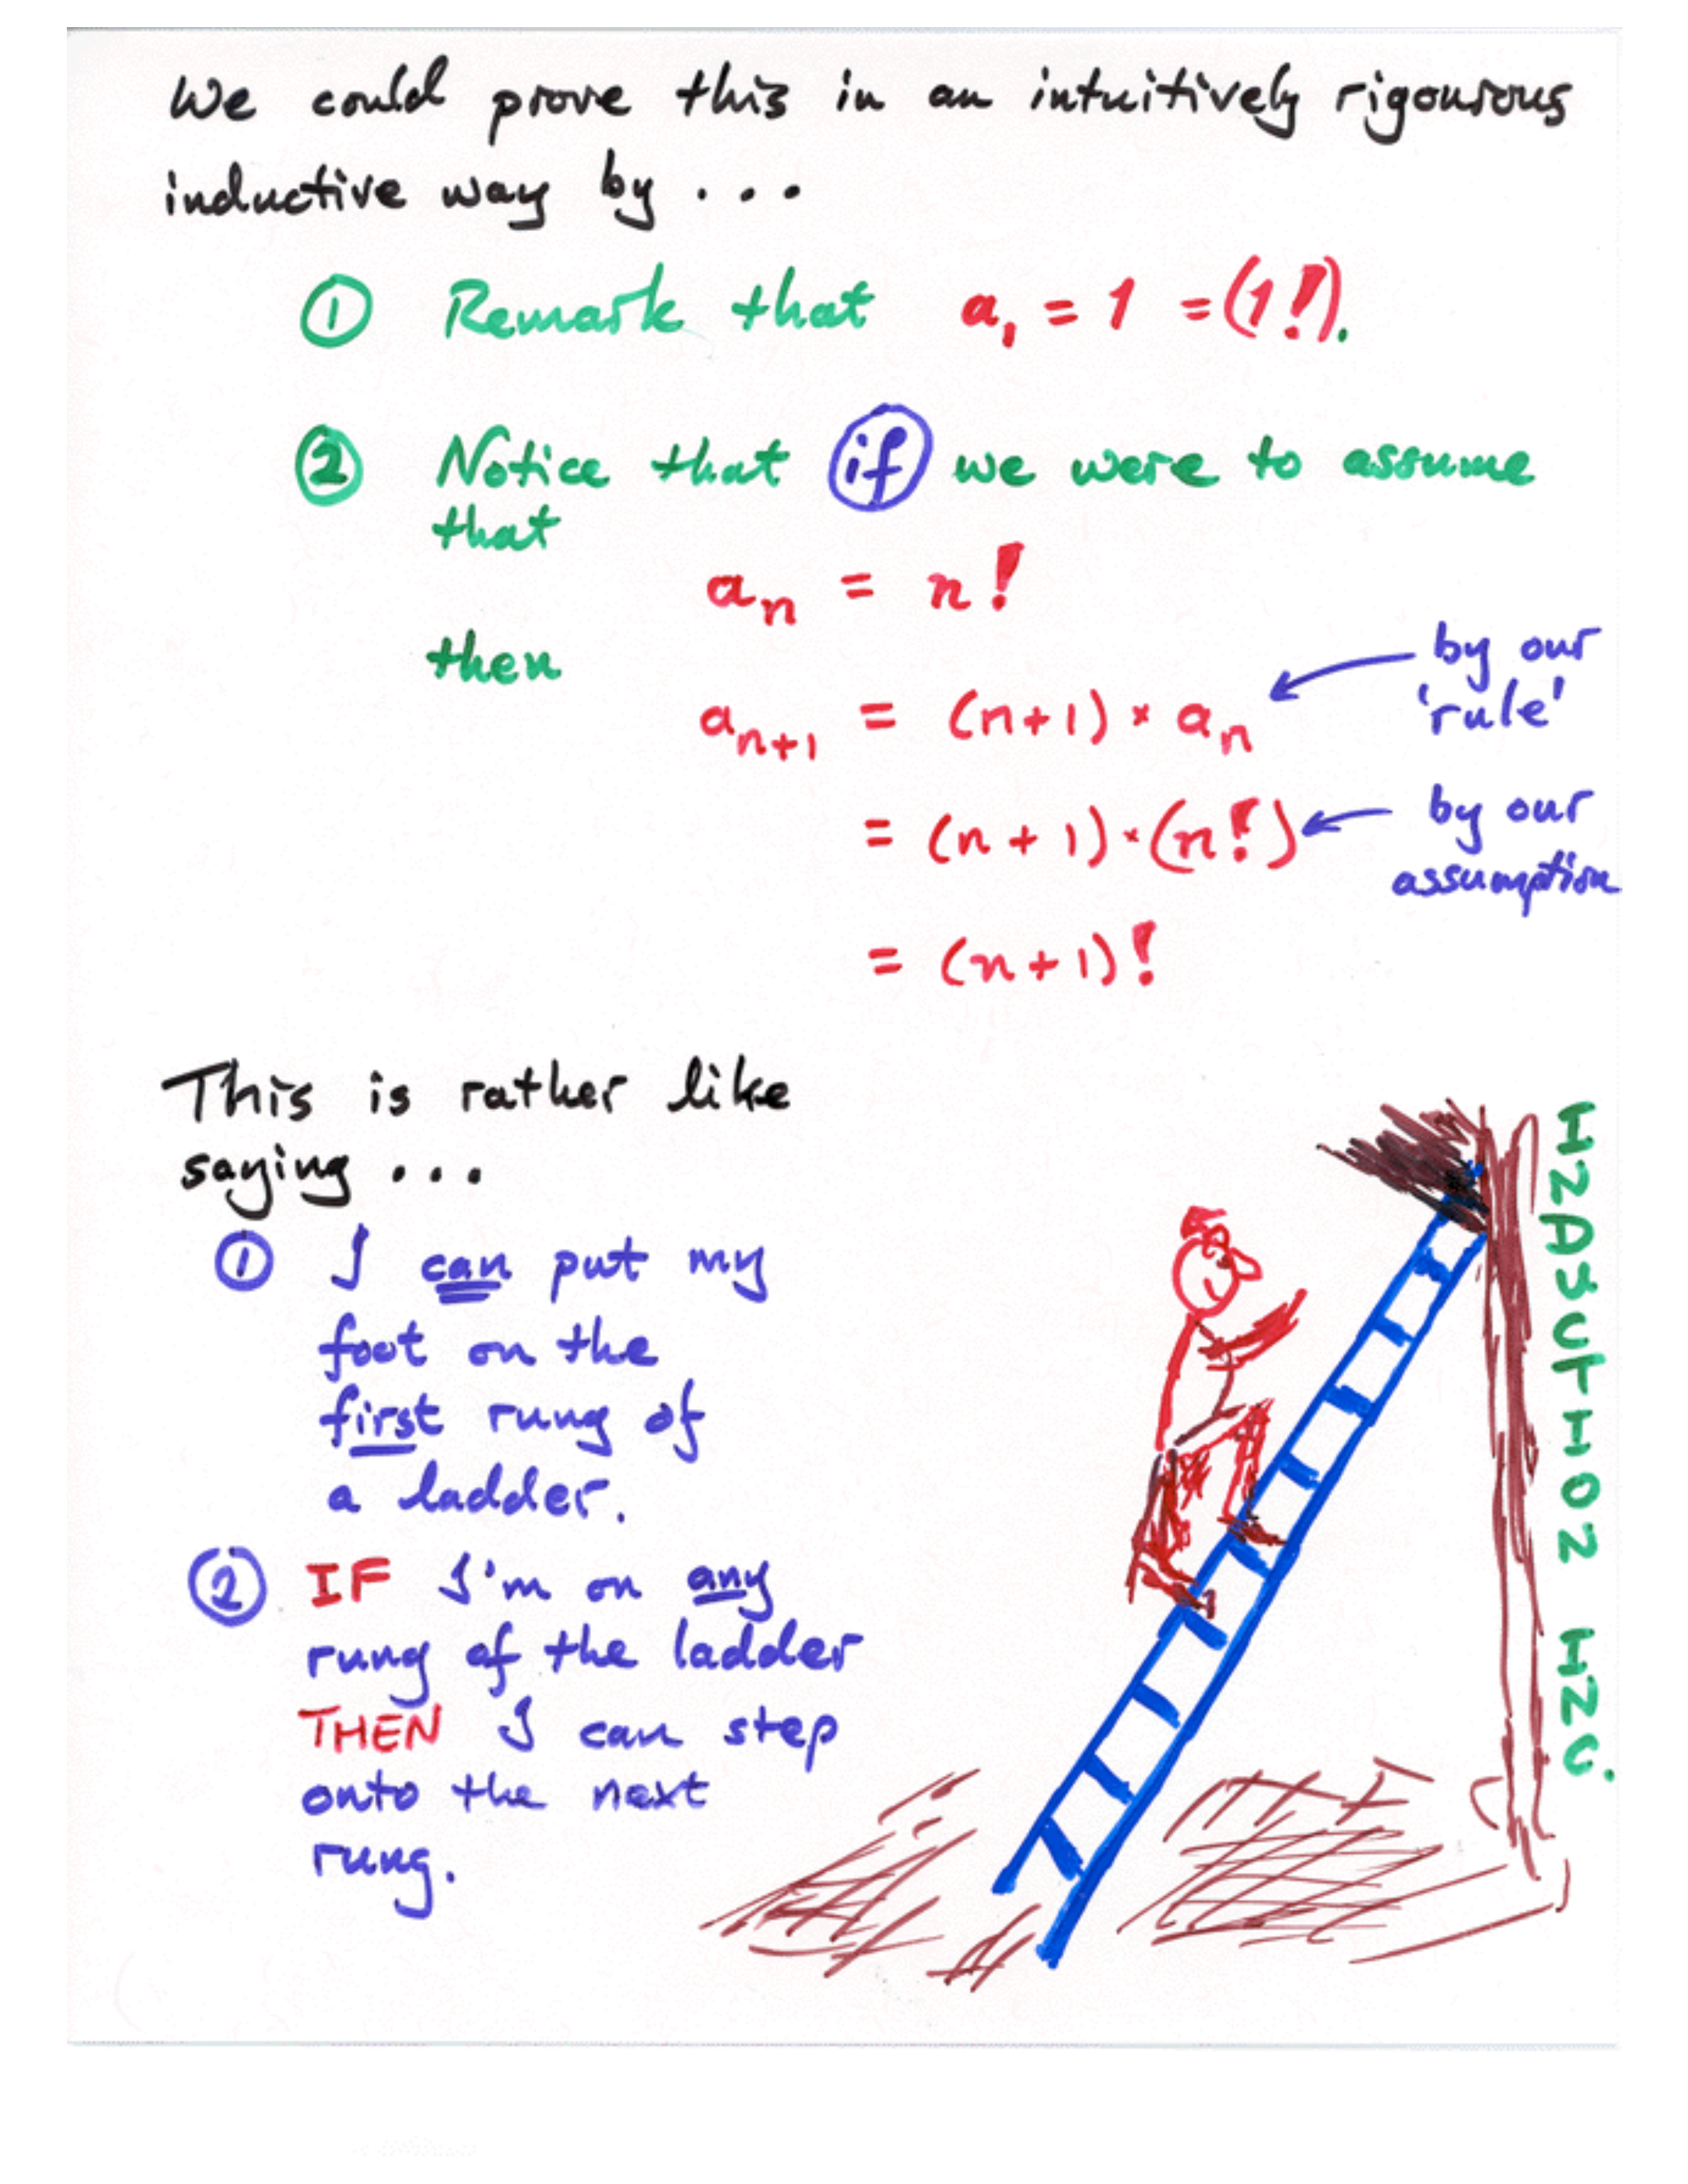 We could prove this in an intuitively rigourous
inductive way by ...
① Remark that a₁ = 1 = (1!).
② Notice that if we were to assume
that
aₙ = n!
then
aₙ₊₁ = (n+1) × aₙ by our
'rule'
= (n+1) × (n!) by our
assumption
= (n+1)!
This is rather like
saying ...
① I can put my
foot on the
first rung of
a ladder.
② IF I'm on any
rung of the ladder
THEN I can step
onto the next
rung.
INDUCTION INC.